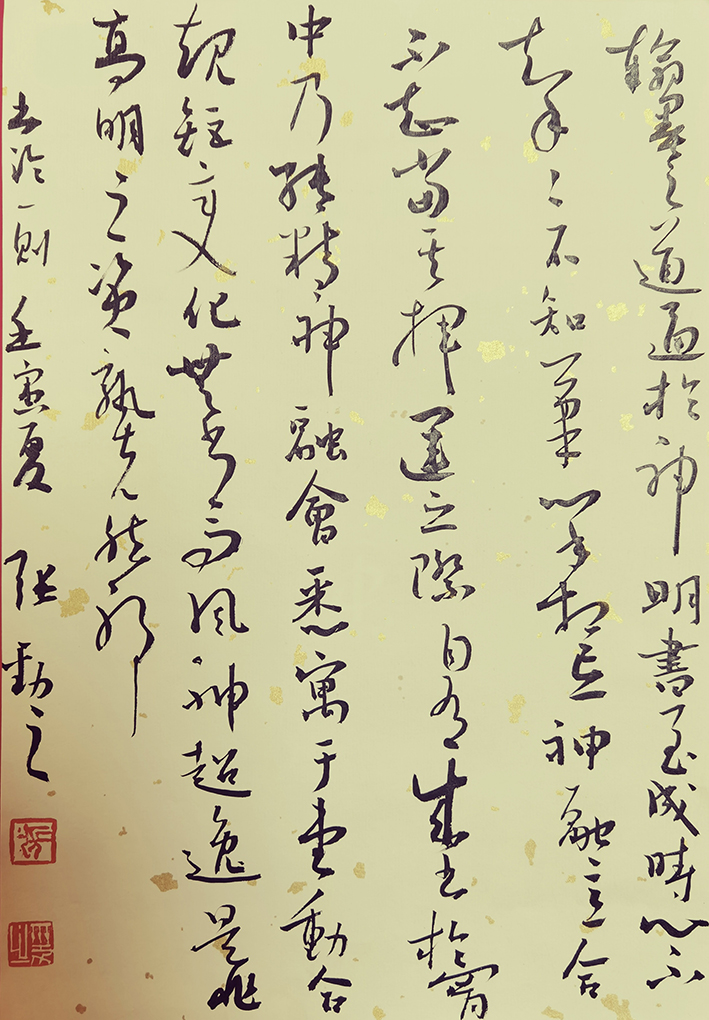 翰墨之道通於神明書至成時心不
知手〻不知筆心手相忘神融意合
不知當其揮運之際自有成書於胷
中乃能精神融會悉寓于書動合
規矩變化無常而風神超逸是非
高明之資孰克然耶
書論一則壬寅夏張勤之